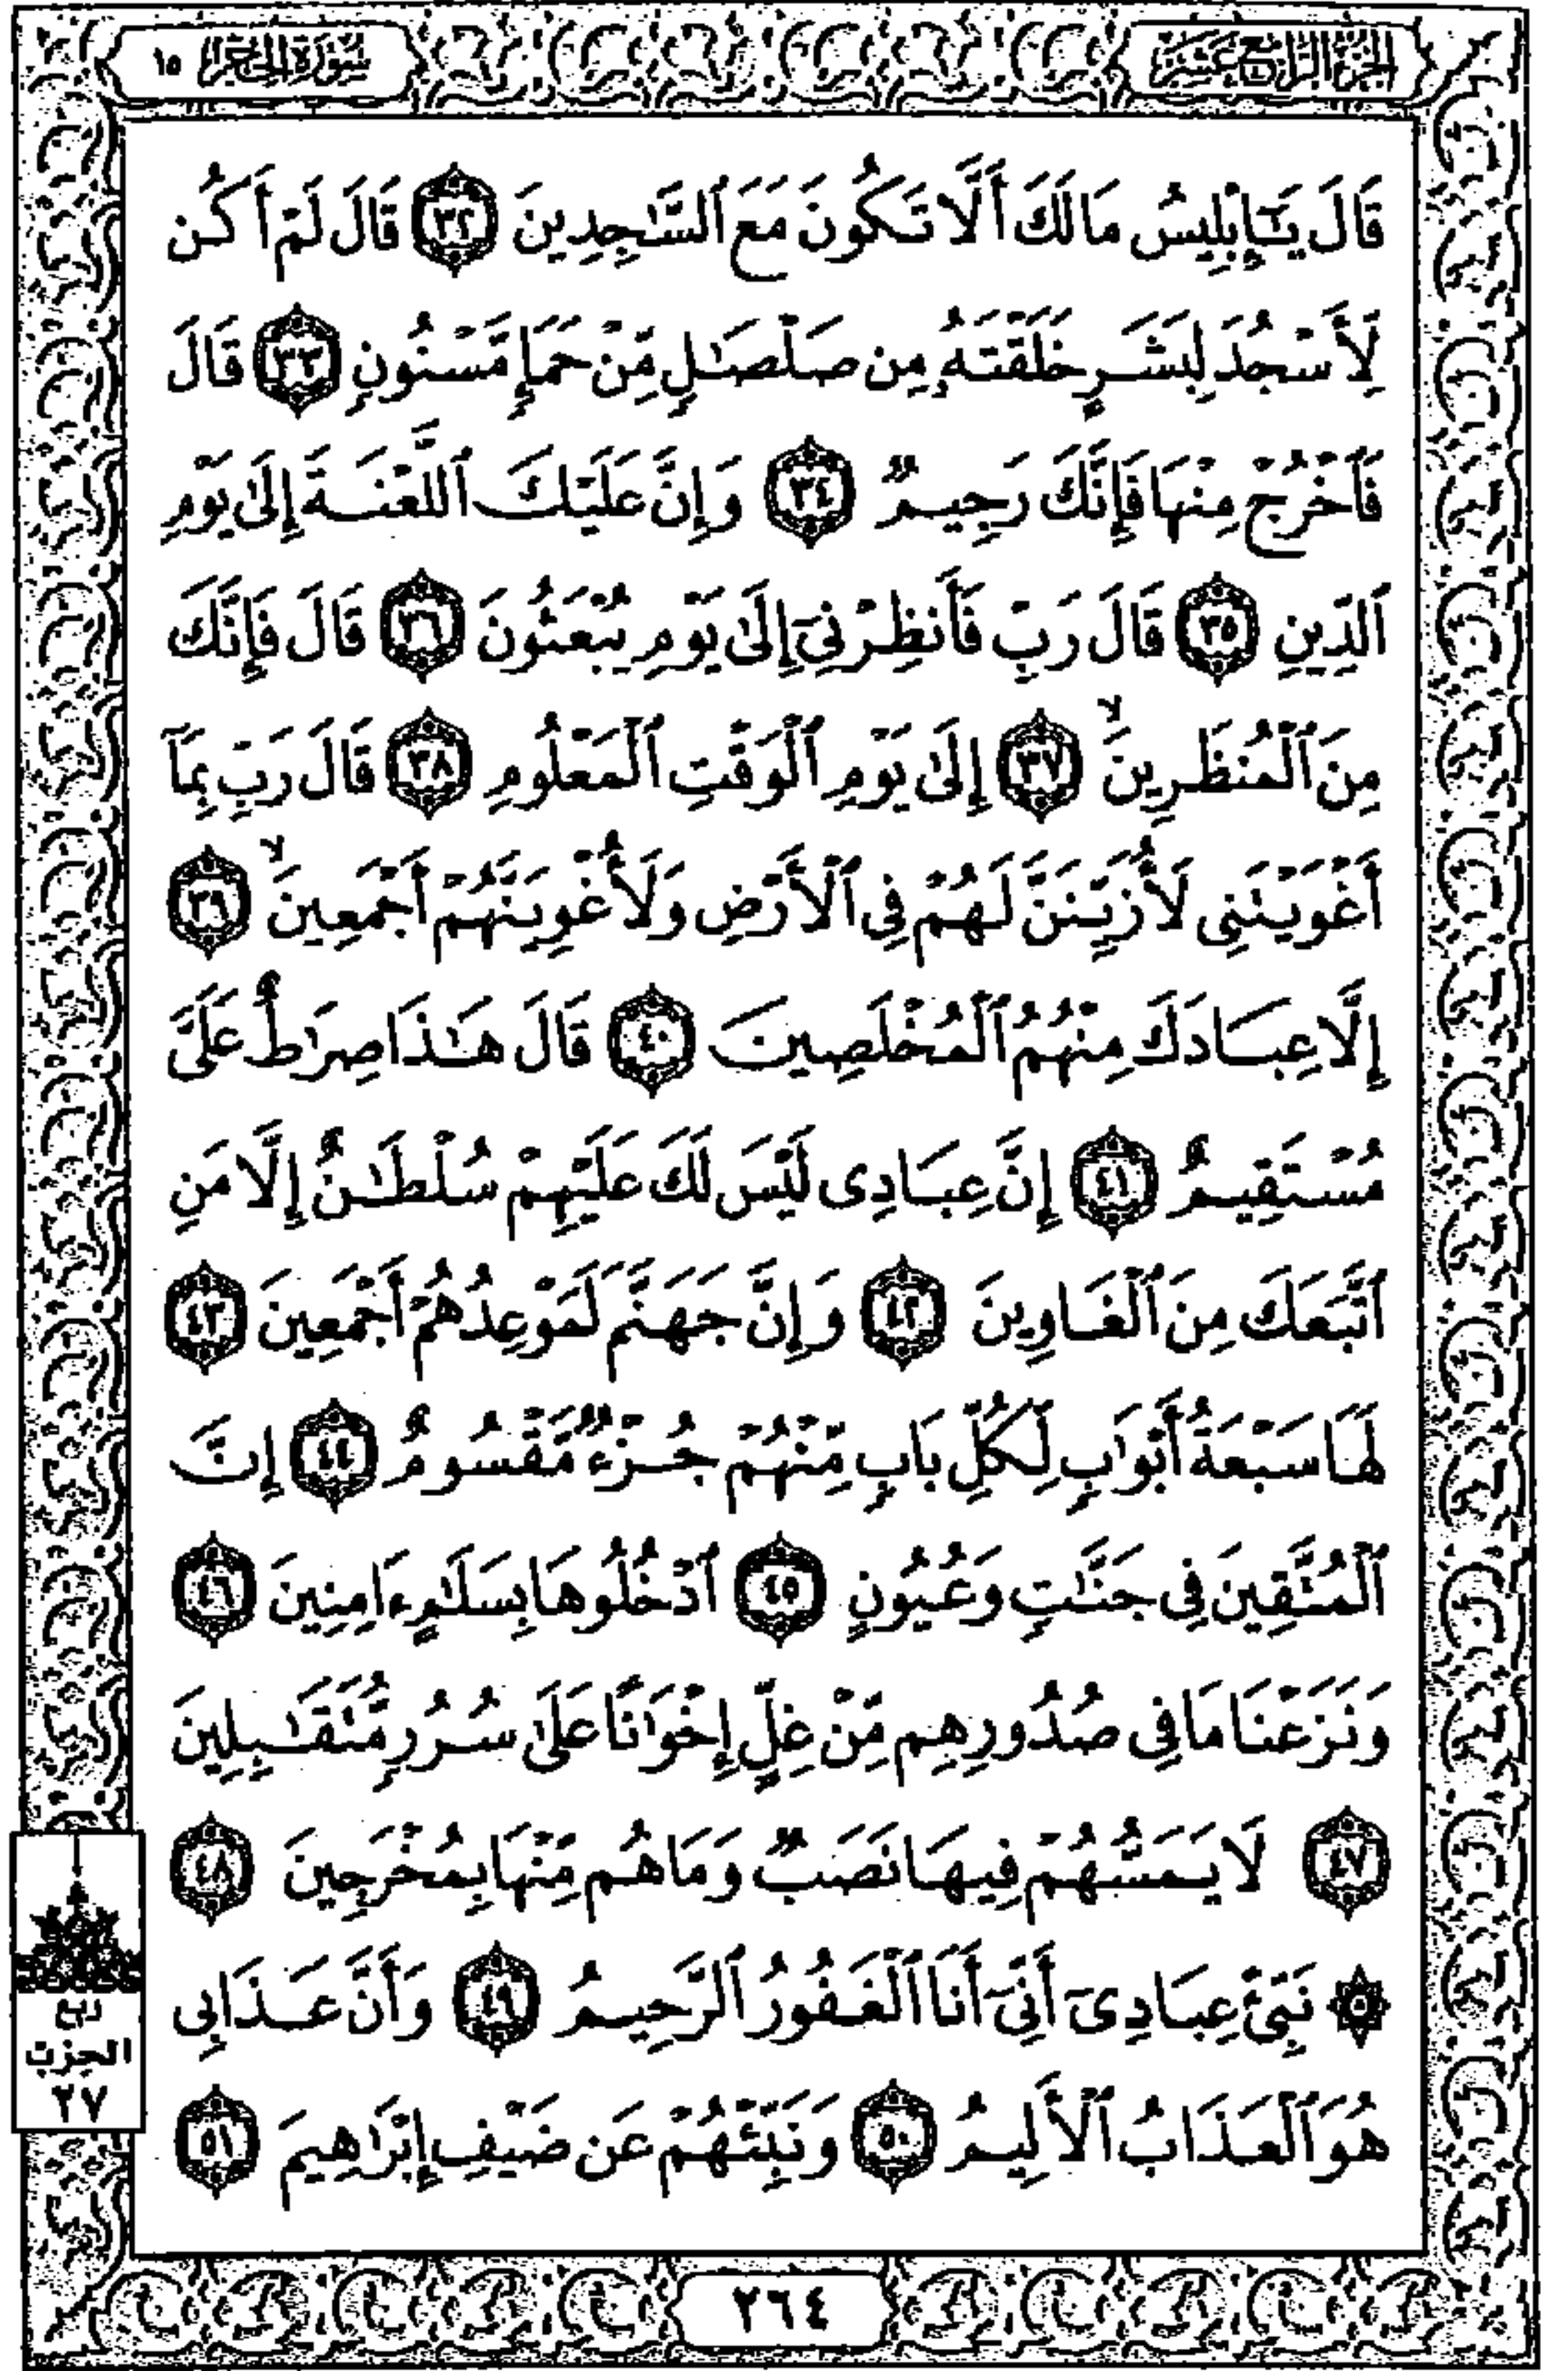 الجزء الرابع عشر
سورة الحجر ١٥
قَالَ يَٰٓإِبْلِيسُ مَا لَكَ أَلَّا تَكُونَ مَعَ ٱلسَّٰجِدِينَ ٣٢ قَالَ لَمْ أَكُن
لِّأَسْجُدَ لِبَشَرٍ خَلَقْتَهُۥ مِن صَلْصَٰلٍ مِّنْ حَمَإٍ مَّسْنُونٍ ٣٣ قَالَ
فَٱخْرُجْ مِنْهَا فَإِنَّكَ رَجِيمٌ ٣٤ وَإِنَّ عَلَيْكَ ٱللَّعْنَةَ إِلَىٰ يَوْمِ
ٱلدِّينِ ٣٥ قَالَ رَبِّ فَأَنظِرْنِىٓ إِلَىٰ يَوْمِ يُبْعَثُونَ ٣٦ قَالَ فَإِنَّكَ
مِنَ ٱلْمُنظَرِينَ ۙ ٣٧ إِلَىٰ يَوْمِ ٱلْوَقْتِ ٱلْمَعْلُومِ ٣٨ قَالَ رَبِّ بِمَآ
أَغْوَيْتَنِى لَأُزَيِّنَنَّ لَهُمْ فِى ٱلْأَرْضِ وَلَأُغْوِيَنَّهُمْ أَجْمَعِينَ ۙ ٣٩
إِلَّا عِبَادَكَ مِنْهُمُ ٱلْمُخْلَصِينَ ٤٠ قَالَ هَٰذَا صِرَٰطٌ عَلَىَّ
مُسْتَقِيمٌ ٤١ إِنَّ عِبَادِى لَيْسَ لَكَ عَلَيْهِمْ سُلْطَٰنٌ إِلَّا مَنِ
ٱتَّبَعَكَ مِنَ ٱلْغَاوِينَ ٤٢ وَإِنَّ جَهَنَّمَ لَمَوْعِدُهُمْ أَجْمَعِينَ ٤٣
لَهَا سَبْعَةُ أَبْوَٰبٍ لِّكُلِّ بَابٍ مِّنْهُمْ جُزْءٌ مَّقْسُومٌ ٤٤ إِنَّ
ٱلْمُتَّقِينَ فِى جَنَّٰتٍ وَعُيُونٍ ٤٥ ٱدْخُلُوهَا بِسَلَٰمٍ ءَامِنِينَ ٤٦
وَنَزَعْنَا مَا فِى صُدُورِهِم مِّنْ غِلٍّ إِخْوَٰنًا عَلَىٰ سُرُرٍ مُّتَقَٰبِلِينَ
٤٧ لَا يَمَسُّهُمْ فِيهَا نَصَبٌ وَمَا هُم مِّنْهَا بِمُخْرَجِينَ ٤٨
۞ نَبِّئْ عِبَادِىٓ أَنِّىٓ أَنَا ٱلْغَفُورُ ٱلرَّحِيمُ ٤٩ وَأَنَّ عَذَابِى
هُوَ ٱلْعَذَابُ ٱلْأَلِيمُ ٥٠ وَنَبِّئْهُمْ عَن ضَيْفِ إِبْرَٰهِيمَ ٥١
ربع
الحزب
٢٧
٢٦٤